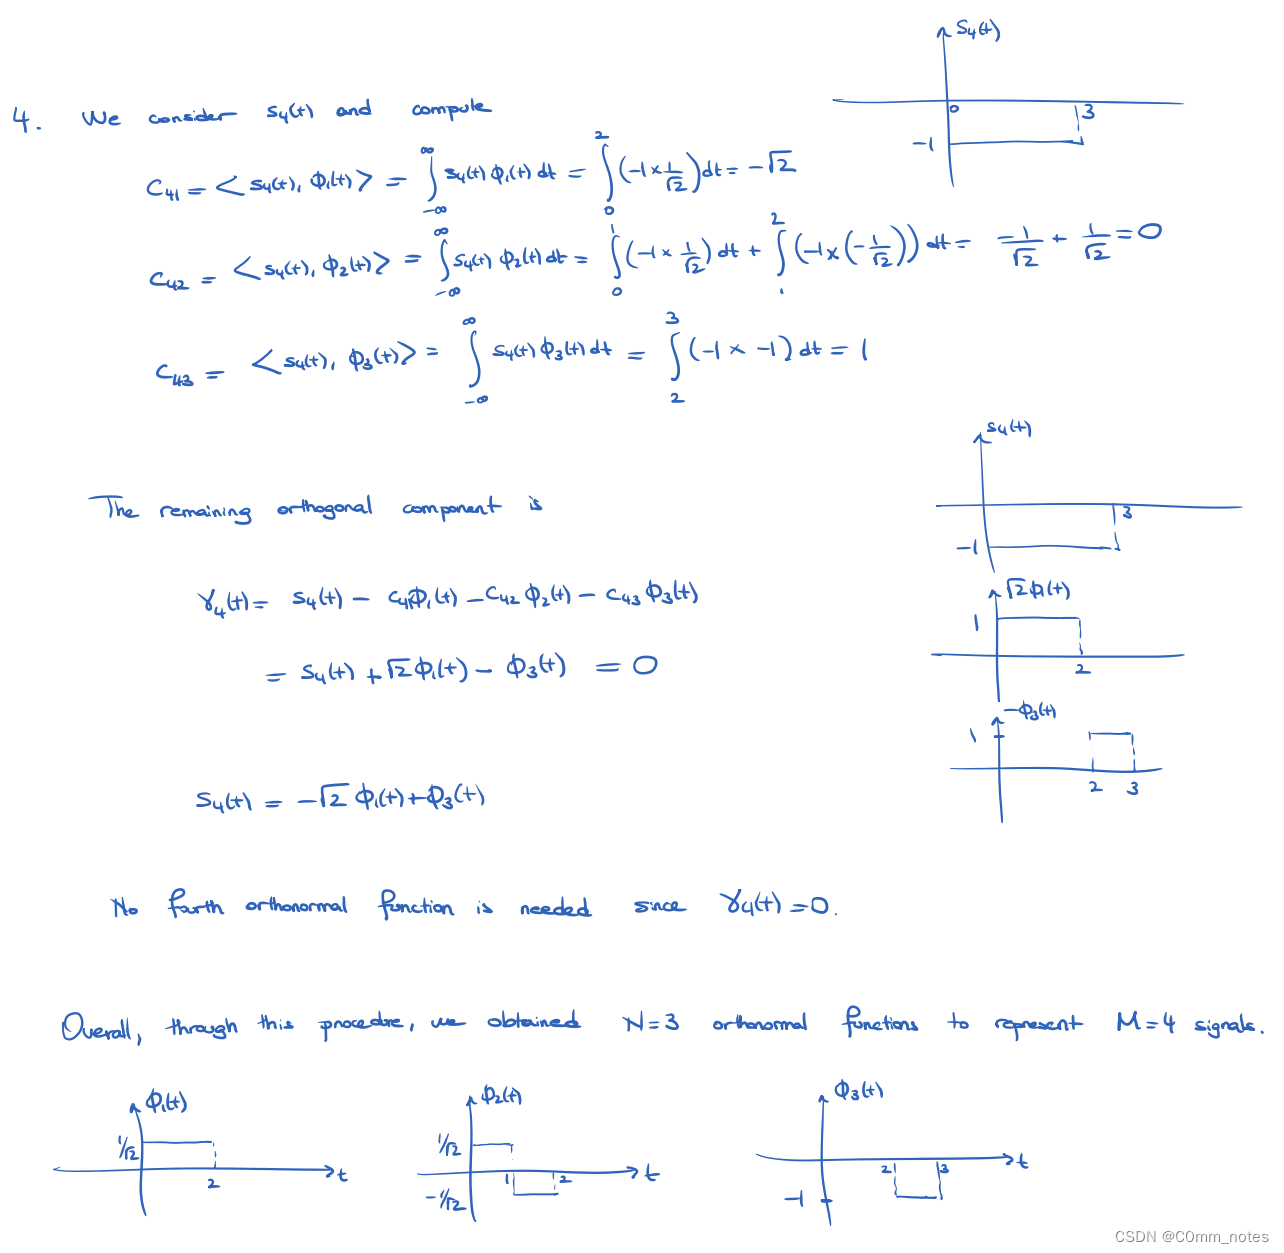 S₄(t)
0
3
-1
4. We consider s₄(t) and compute
C₄₁ = <s₄(t), Φ₁(t)> = ∫_{-∞}^{∞} s₄(t) Φ₁(t) dt = ∫_0^2 (-1 × 1/√2) dt = -√2
C₄₂ = <s₄(t), Φ₂(t)> = ∫_{-∞}^{∞} s₄(t) Φ₂(t) dt = ∫_0^1 (-1 × 1/√2) dt + ∫_1^2 (-1 × (-1/√2)) dt = -1/√2 + 1/√2 = 0
C₄₃ = <s₄(t), Φ₃(t)> = ∫_{-∞}^{∞} s₄(t) Φ₃(t) dt = ∫_2^3 (-1 × -1) dt = 1
s₄(t)
3
-1
The remaining orthogonal component is
γ₄(t) = s₄(t) - C₄₁Φ₁(t) - C₄₂Φ₂(t) - C₄₃Φ₃(t)
= s₄(t) + √2Φ₁(t) - Φ₃(t) = 0
√2Φ₁(t)
1
2
-Φ₃(t)
1
2 3
s₄(t) = -√2 Φ₁(t) + Φ₃(t)
No fourth orthonormal function is needed since γ₄(t) = 0.
Overall, through this procedure, we obtained N=3 orthonormal functions to represent M=4 signals.
Φ₁(t)
1/√2
2
t
Φ₂(t)
1/√2
1 2
t
-1/√2
Φ₃(t)
2 3
t
-1
CSDN @C0mm_notes